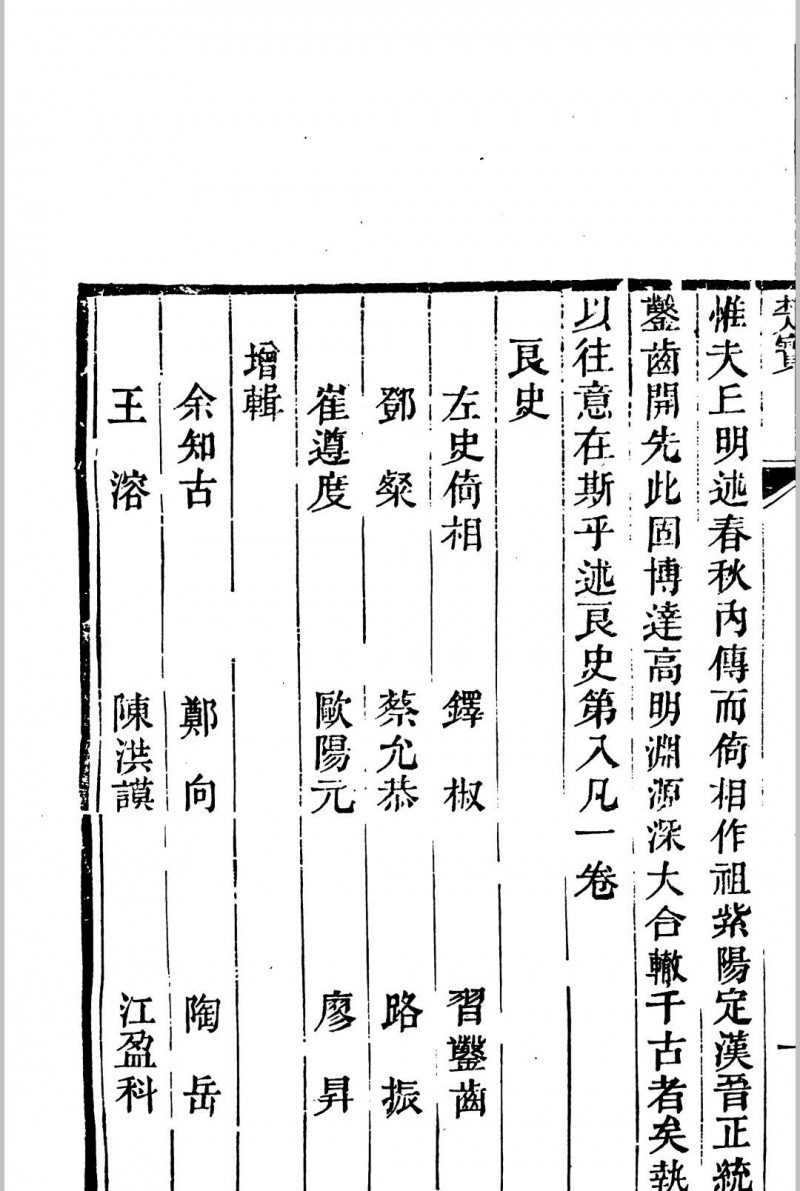 楚寶
一
惟夫丘明述春秋內傳而倚相作祖紫陽定漢晉正統
鑿齒開先此固博達高明淵源深大合轍千古者矣執
以往意在斯乎述良史第入凡一卷
良史
左史倚相　鐸椒　習鑿齒
鄧粲　蔡允恭　路振
崔遵度　歐陽元　廖昇
增輯
余知古　鄭向　陶岳
王溶　陳洪謨　江盈科